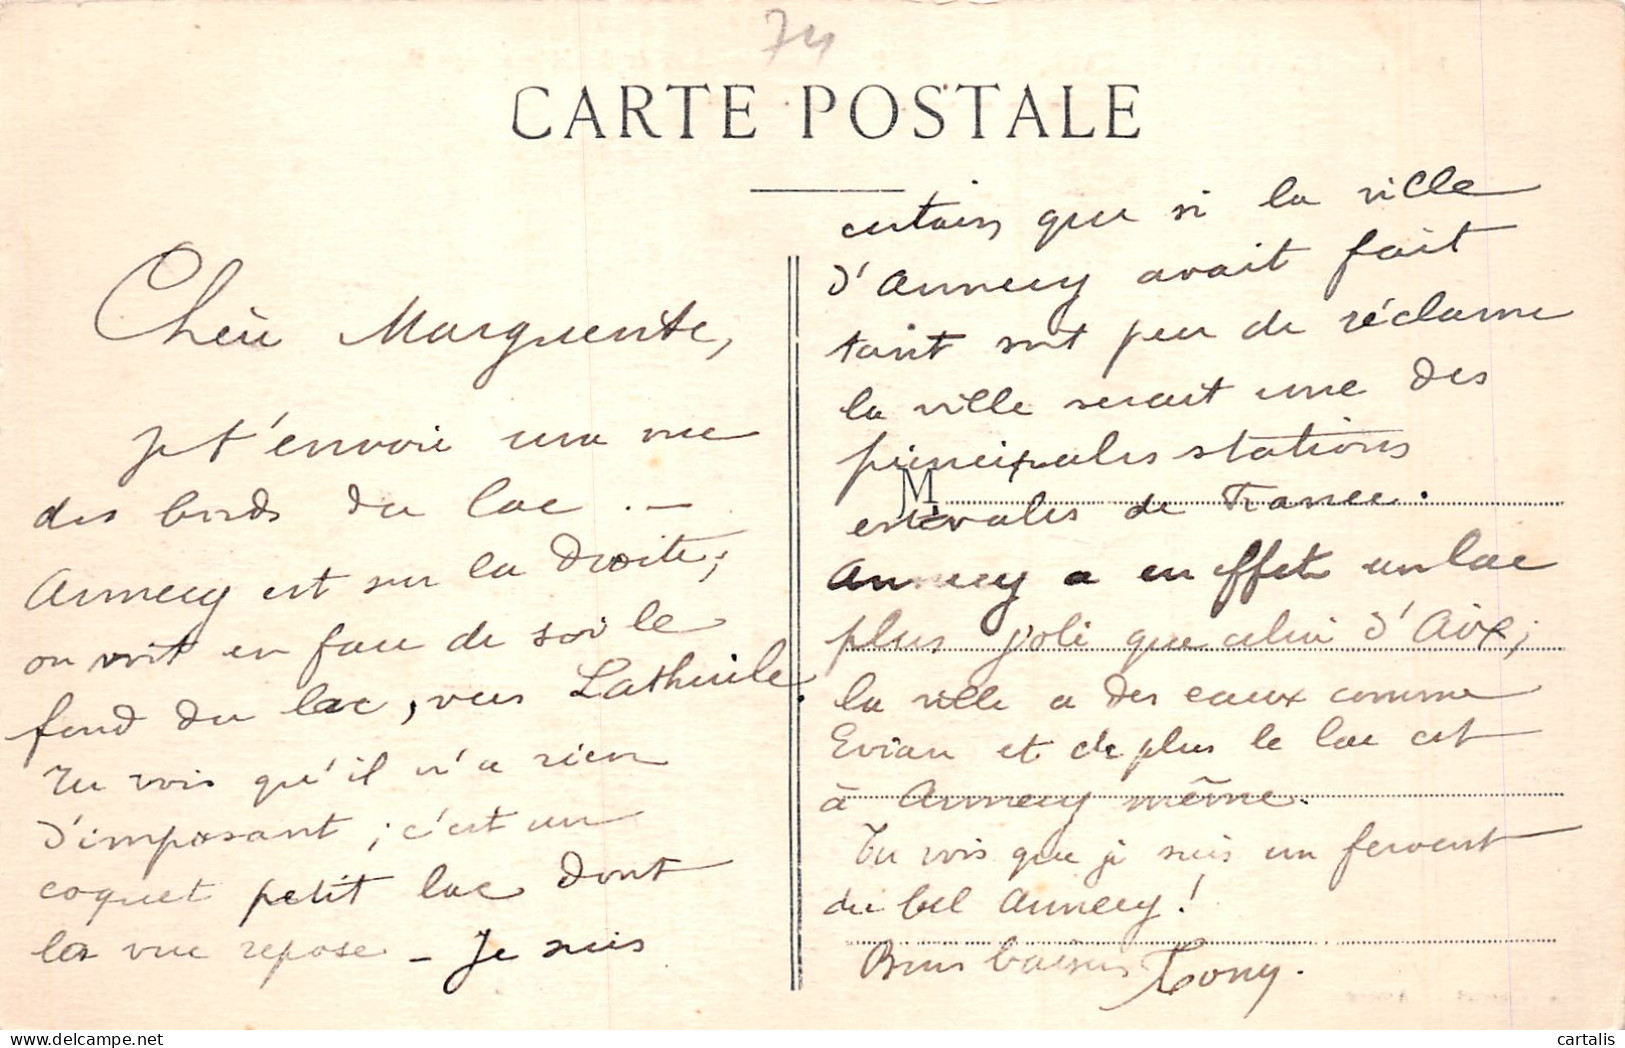 74
CARTE POSTALE
Chère Marguerite,
Je t'envoie une vue
des bords du lac. —
Annecy est sur la droite;
on voit en face de soi le
fond du lac, vers Lathuile.
Tu vois qu'il n'a rien
d'imposant; c'est un
coquet petit lac dont
la vue repose — Je suis
certain que si la ville
d'Annecy avait fait
tant soit peu de réclame
la ville serait une des
principales stations
M
estivales de France.
Annecy a en effet un lac
plus joli que celui d'Aix;
la ville a des eaux comme
Evian et de plus le lac est
à Annecy même.
Tu vois que je suis un fervent
du bel Annecy!
Bons baisers Tony.
cartalis